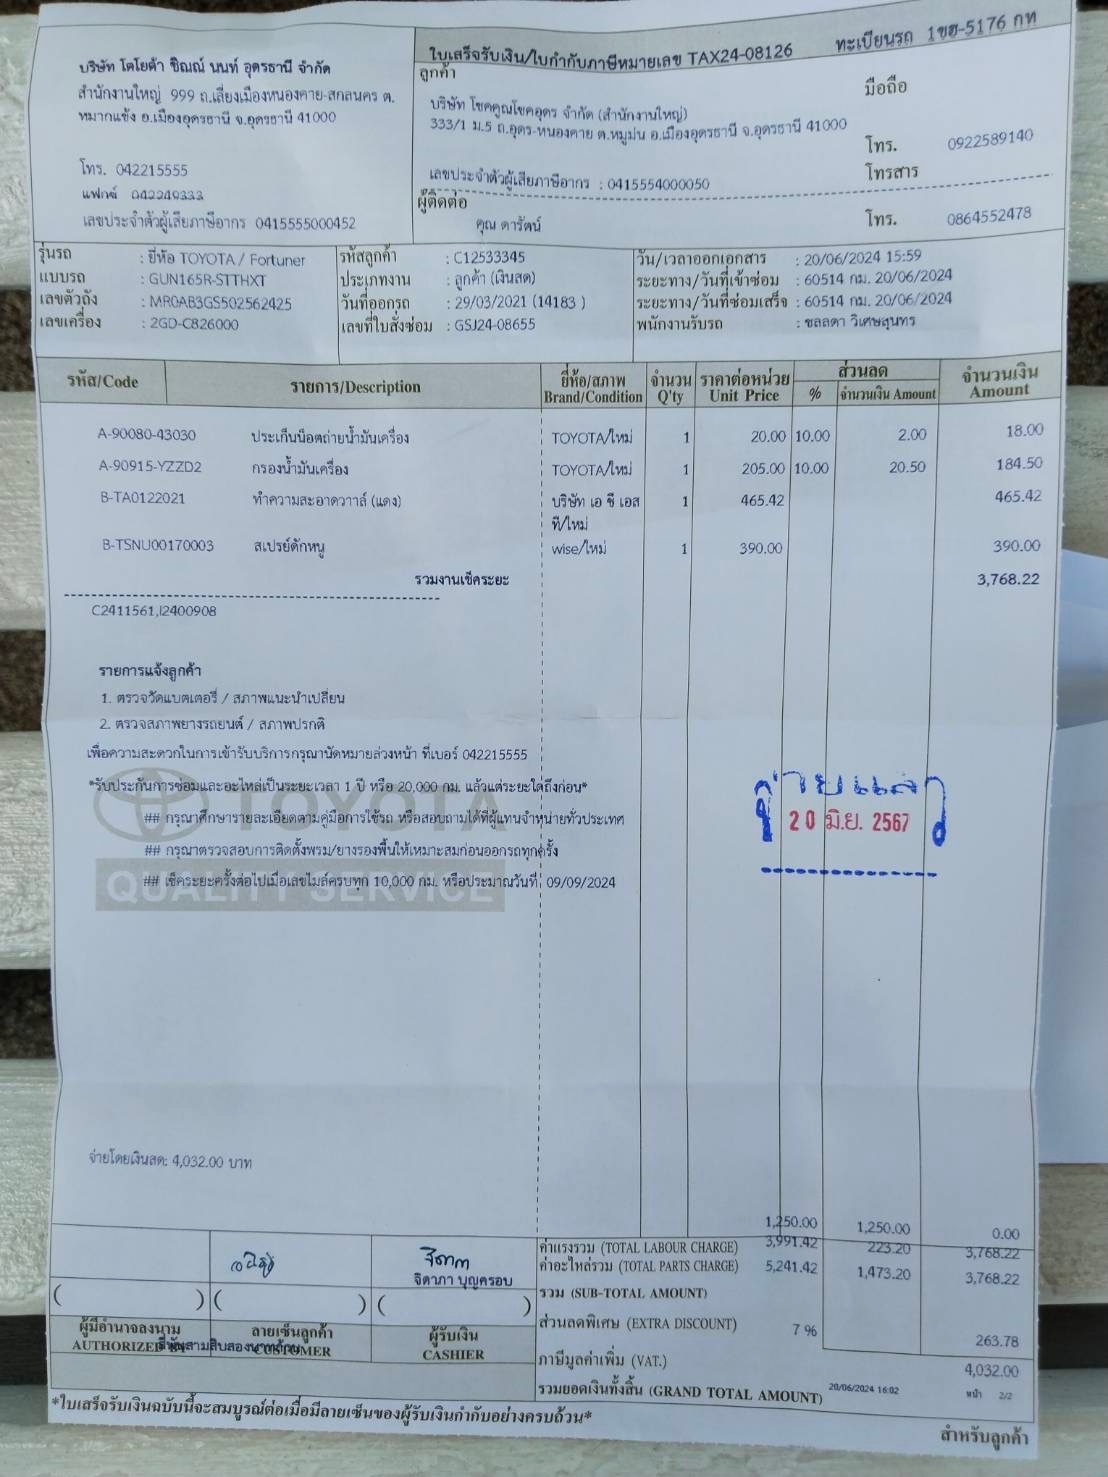 บริษัท โตโยต้า ชิณณ์ นนท์ อุดรธานี จำกัด
สำนักงานใหญ่ 999 ถ.เลี่ยงเมืองหนองคาย-สกลนคร ต.
หมากแข้ง อ.เมืองอุดรธานี จ.อุดรธานี 41000
โทร. 042215555
แฟกซ์ 042249333
เลขประจำตัวผู้เสียภาษีอากร 0415555000452
ใบเสร็จรับเงิน/ใบกำกับภาษีหมายเลข TAX24-08126 ทะเบียนรถ 1ขฮ-5176 กท
ลูกค้า
บริษัท โชคคูณโชคอุดร จำกัด (สำนักงานใหญ่)
333/1 ม.5 ถ.อุดร-หนองคาย ต.หมูม่น อ.เมืองอุดรธานี จ.อุดรธานี 41000
มือถือ
โทร. 0922589140
โทรสาร
เลขประจำตัวผู้เสียภาษีอากร : 0415554000050
ผู้ติดต่อ
คุณ ดารัตน์
โทร. 0864552478
รุ่นรถ : ยี่ห้อ TOYOTA / Fortuner
แบบรถ : GUN165R-STTHXT
เลขตัวถัง : MR0AB3GS502562425
เลขเครื่อง : 2GD-C826000
รหัสลูกค้า : C12533345
ประเภทงาน : ลูกค้า (เงินสด)
วันที่ออกรถ : 29/03/2021 (14183 )
เลขที่ใบสั่งซ่อม : GSJ24-08655
วัน/เวลาออกเอกสาร : 20/06/2024 15:59
ระยะทาง/วันที่เข้าซ่อม : 60514 กม. 20/06/2024
ระยะทาง/วันที่ซ่อมเสร็จ : 60514 กม. 20/06/2024
พนักงานรับรถ : ชลลดา วิเศษสุนทร
รหัส/Code รายการ/Description ยี่ห้อ/สภาพ Brand/Condition จำนวน Q'ty ราคาต่อหน่วย Unit Price ส่วนลด % จำนวนเงิน Amount จำนวนเงิน Amount
A-90080-43030 ประเก็นน็อตถ่ายน้ำมันเครื่อง TOYOTA/ใหม่ 1 20.00 10.00 2.00 18.00
A-90915-YZZD2 กรองน้ำมันเครื่อง TOYOTA/ใหม่ 1 205.00 10.00 20.50 184.50
B-TA0122021 ทำความสะอาดวาาล์ (แดง) บริษัท เอ ซี เอส 1 465.42 465.42
ที/ใหม่
B-TSNU00170003 สเปรย์ดักหนู wise/ใหม่ 1 390.00 390.00
รวมงานเช็คระยะ 3,768.22
C2411561,I2400908
รายการแจ้งลูกค้า
1. ตรวจวัดแบตเตอรี่ / สภาพแนะนำเปลี่ยน
2. ตรวจสภาพยางรถยนต์ / สภาพปรกติ
เพื่อความสะดวกในการเข้ารับบริการกรุณานัดหมายล่วงหน้า ที่เบอร์ 042215555
*รับประกันการซ่อมและอะไหล่เป็นระยะเวลา 1 ปี หรือ 20,000 กม. แล้วแต่ระยะใดถึงก่อน*
## กรุณาศึกษารายละเอียดตามคู่มือการใช้รถ หรือสอบถามได้ที่ผู้แทนจำหน่ายทั่วประเทศ
## กรุณาตรวจสอบการติดตั้งพรม/ยางรองพื้นให้เหมาะสมก่อนออกรถทุกครั้ง
## เช็คระยะครั้งต่อไปเมื่อเลขไมล์ครบทุก 10,000 กม. หรือประมาณวันที่ 09/09/2024
TOYOTA
QUALITY SERVICE
จ่ายแล้ว
20 มิ.ย. 2567
จ่ายโดยเงินสด: 4,032.00 บาท
ค่าแรงรวม (TOTAL LABOUR CHARGE) 1,250.00 1,250.00 0.00
ค่าอะไหล่รวม (TOTAL PARTS CHARGE) 3,991.42 223.20 3,768.22
รวม (SUB-TOTAL AMOUNT) 5,241.42 1,473.20 3,768.22
ส่วนลดพิเศษ (EXTRA DISCOUNT)
ภาษีมูลค่าเพิ่ม (VAT.) 7 % 263.78
รวมยอดเงินทั้งสิ้น (GRAND TOTAL AMOUNT) 4,032.00
20/06/2024 16:02 หน้า 2/2
จิดาภา
จิดาภา บุญครอบ
( ) ( ) ( )
ผู้มีอำนาจลงนาม ลายเซ็นลูกค้า ผู้รับเงิน
AUTHORIZED BY CUSTOMER CASHIER
สี่พันสามสิบสองบาทถ้วน
*ใบเสร็จรับเงินฉบับนี้จะสมบูรณ์ต่อเมื่อมีลายเซ็นของผู้รับเงินกำกับอย่างครบถ้วน*
สำหรับลูกค้า